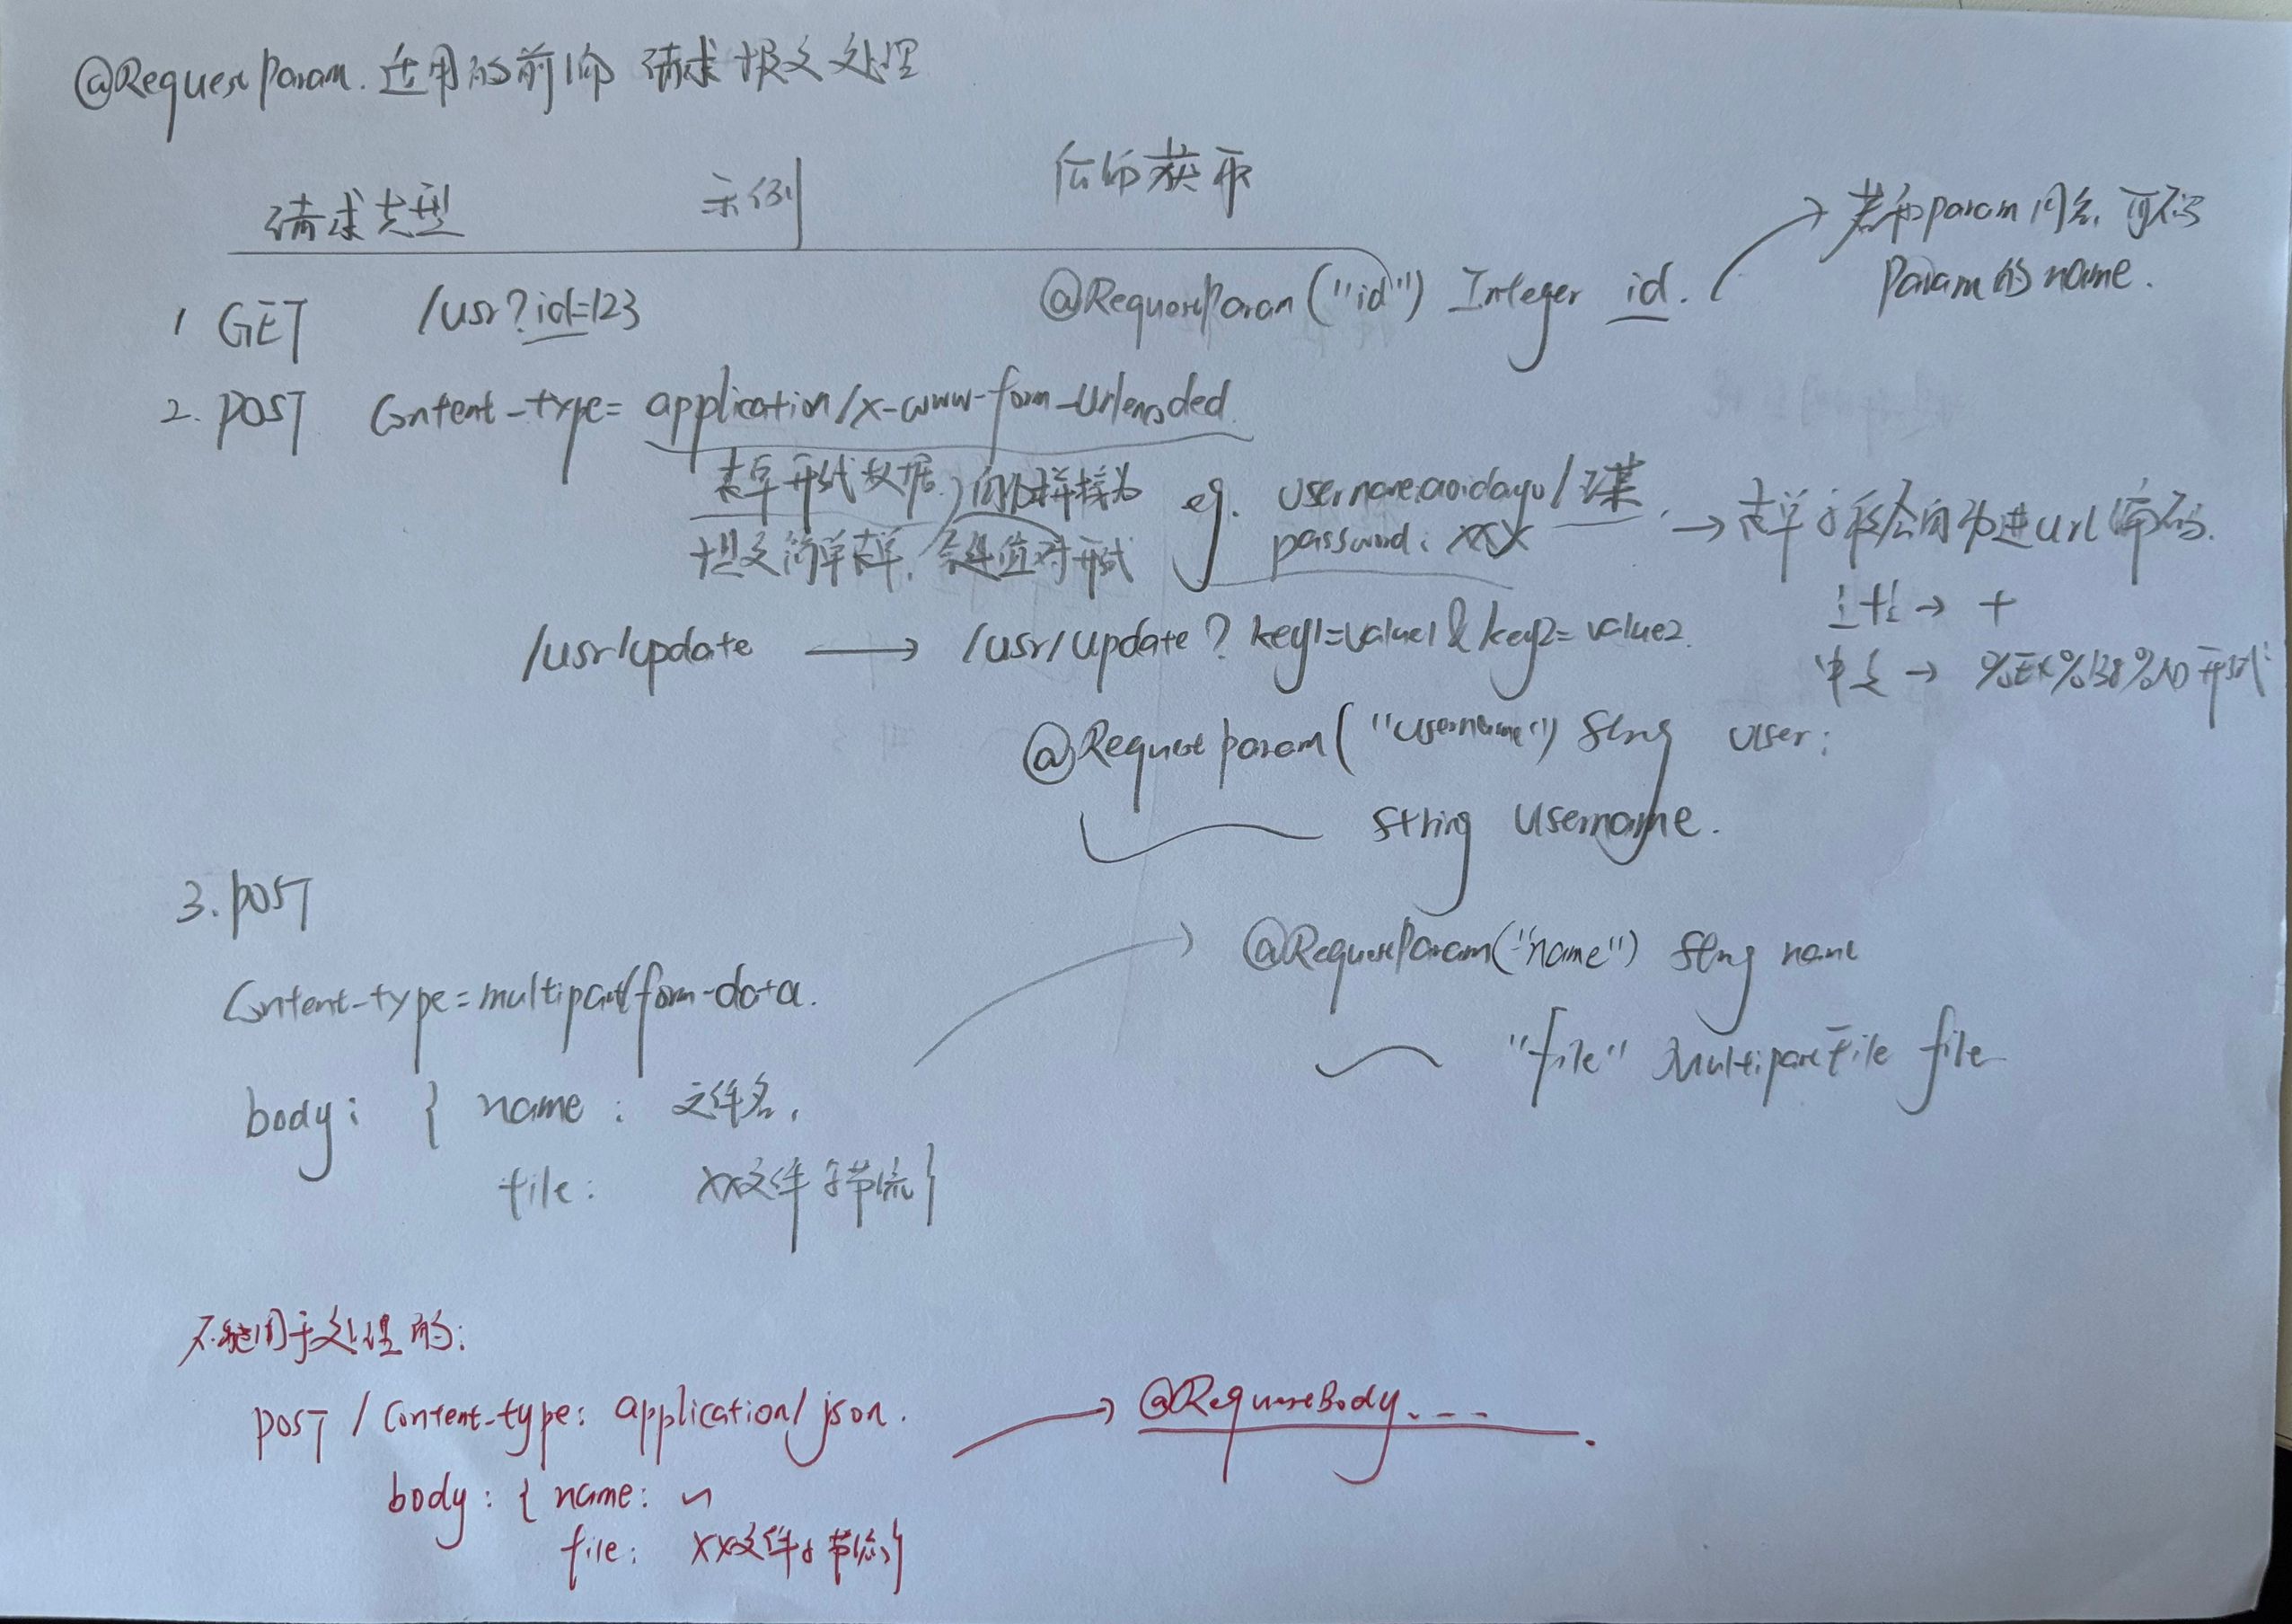 @RequestParam. 适用的前端 请求报文处理
请求类型 示例 后端获取
1 GET /usr?id=123 @RequestParam("id") Integer id. → 若和param同名, 可不写
Param的name.
2. POST Content-type= application/x-www-form-urlencoded
表单形式数据, 拼接为 eg. username: /
提交简单表单, 键值对形式 password: xxx → 表单 会自动进url编码.
→ +
中文 → 形式
/usr/update → /usr/update ? key1=value1&key2=value2.
@RequestParam("username") String user;
String username.
3. POST
Content-type=multipart/form-data.
→ @RequestParam("name") String name
"file" MultipartFile file
body: { name : 文件名,
file: xx文件字节流}
不能用于处理的:
POST / Content-type: application/json. → @RequestBody. - - -
body : { name: ~
file: xx文件字节流}